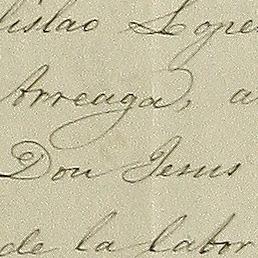 lislao Lope
Arreaga, a
Don Jesus
de la labor